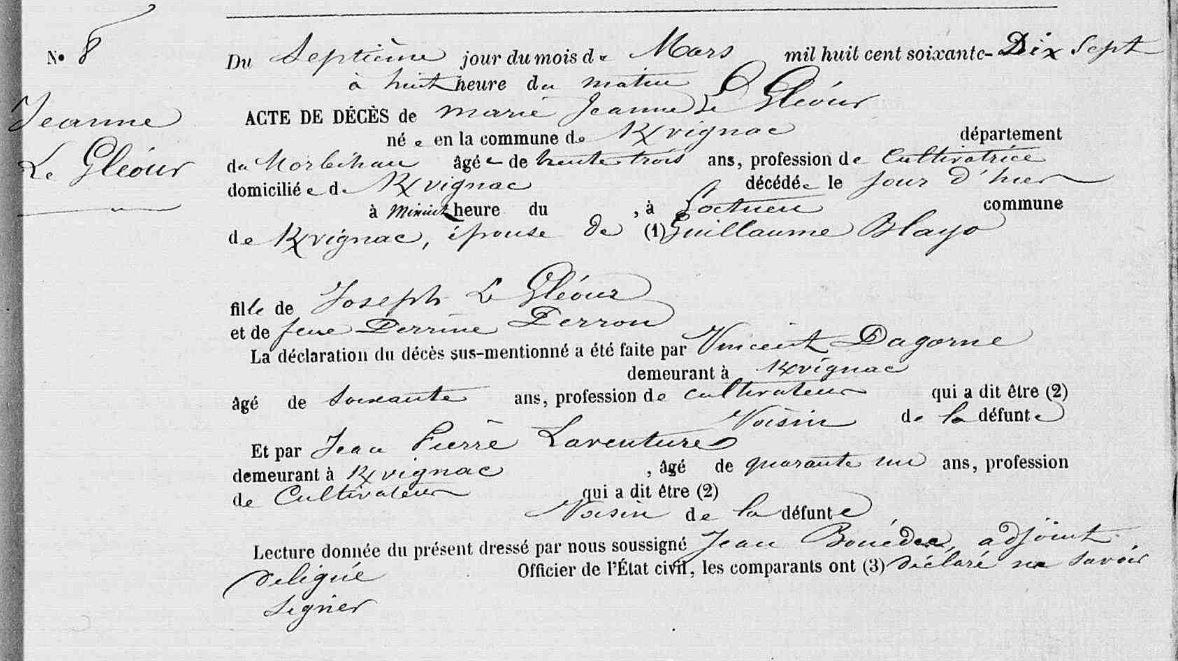 N° 8
Jeanne
Le Gléour
Du Septième jour du mois de Mars mil huit cent soixante-Dix Sept
à huit heure du matin
ACTE DE DÉCÈS de marie Jeanne Le Gléour
né e en la commune de Kvignac département
du Morbihan âgé e de trente trois ans, profession de Cultivatrice
domicilié e de Kvignac décédé e le jour d'hier
à Minuit heure du , à commune
de Kvignac, épouse de (1) Guillaume Blayo
fille de Joseph Le Gléour
et de feue Perrine Perron
La déclaration du décès sus-mentionné a été faite par Vincent Dagorne
demeurant à Kvignac
âgé de soixante ans, profession de cultivateur qui a dit être (2)
Voisin de la défunte
Et par Jean Pierre Laventure
demeurant à Kvignac , âgé de quarante un ans, profession
de Cultivateur qui a dit être (2)
Voisin de la défunte
Lecture donnée du présent dressé par nous soussigné Jean Bouédec, adjoint
délégué Officier de l'État civil, les comparants ont (3) déclaré ne savoir
signer